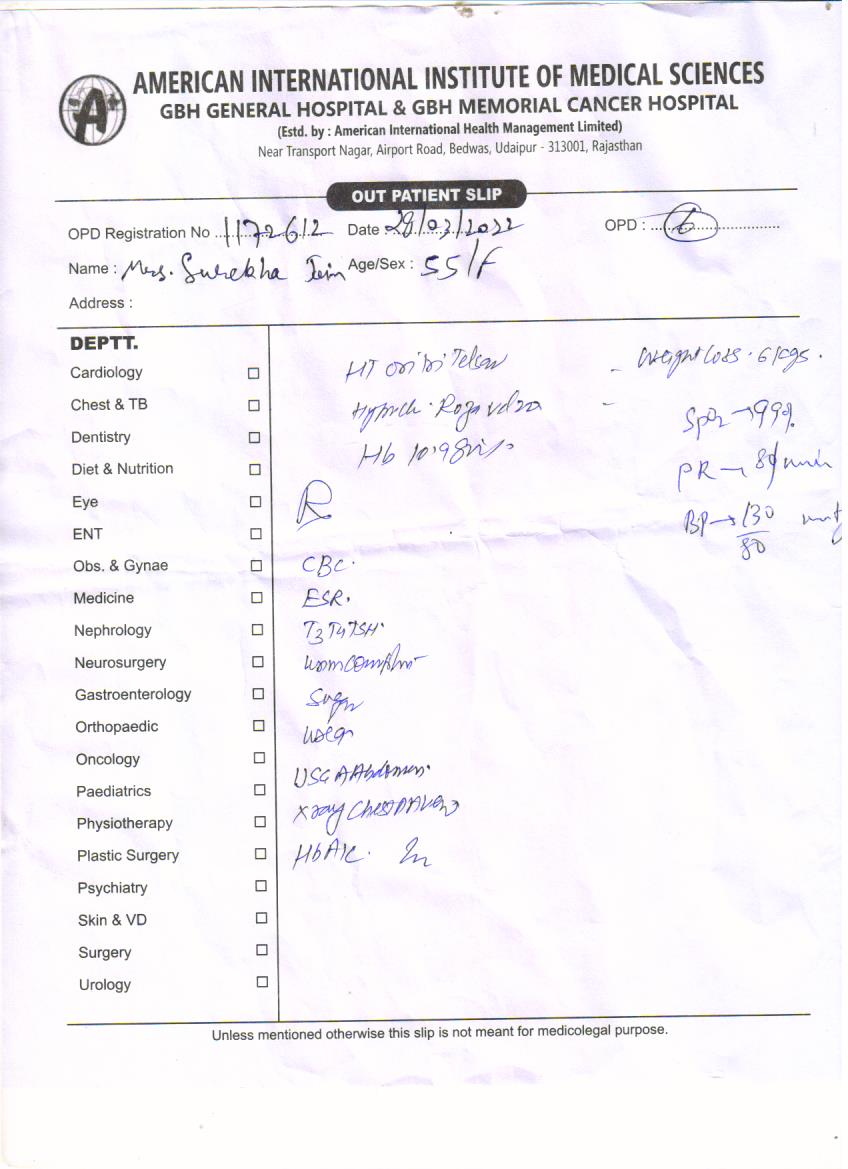 AMERICAN INTERNATIONAL INSTITUTE OF MEDICAL SCIENCES
GBH GENERAL HOSPITAL & GBH MEMORIAL CANCER HOSPITAL
(Estd. by : American International Health Management Limited)
Near Transport Nagar, Airport Road, Bedwas, Udaipur - 313001, Rajasthan
OUT PATIENT SLIP
OPD Registration No 1172612 Date : 29/03/2022 OPD : 6
Name : Mrs. Surekha Jain Age/Sex : 55/F
Address :
DEPTT.
Cardiology
Chest & TB
Dentistry
Diet & Nutrition
Eye
ENT
Obs. & Gynae
Medicine
Nephrology
Neurosurgery
Gastroenterology
Orthopaedic
Oncology
Paediatrics
Physiotherapy
Plastic Surgery
Psychiatry
Skin & VD
Surgery
Urology
HT
Hb 10.9
R
CBC.
ESR.
T3 T4 TSH.
Sugar
USG Abdomen.
Xray Chest PA View
HbA1c.
- Weight Loss. 6 kgs.
SpO2 → 99%
PR →
BP → 130
80
Unless mentioned otherwise this slip is not meant for medicolegal purpose.